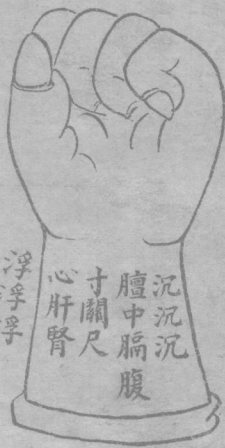 沉沉沉
膻中膈腹
寸關尺
心肝腎
浮浮浮